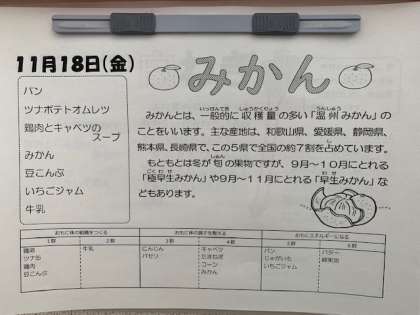 11月18日(金)
みかん
パン
ツナポテトオムレツ
鶏肉とキャベツの
スープ
みかん
豆こんぶ
いちごジャム
牛乳
みかんとは、一般的に収穫量の多い「温州みかん」の
ことをいいます。主な産地は、和歌山県、愛媛県、静岡県、
熊本県、長崎県で、この5県で全国の約7割を占めています。
もともとは冬が旬の果物ですが、9月~10月にとれる
「極早生みかん」や9月~11月にとれる「早生みかん」な
どもあります。
おもに体の組織をつくる
おもに体の調子を整える
おもにエネルギーになる
1群 2群 3群 4群 5群 6群
鶏卵 牛乳 にんじん キャベツ パン バター
ツナ缶 パセリ たまねぎ じゃがいも
鶏肉 コーン いちごジャム
豆こんぶ みかん